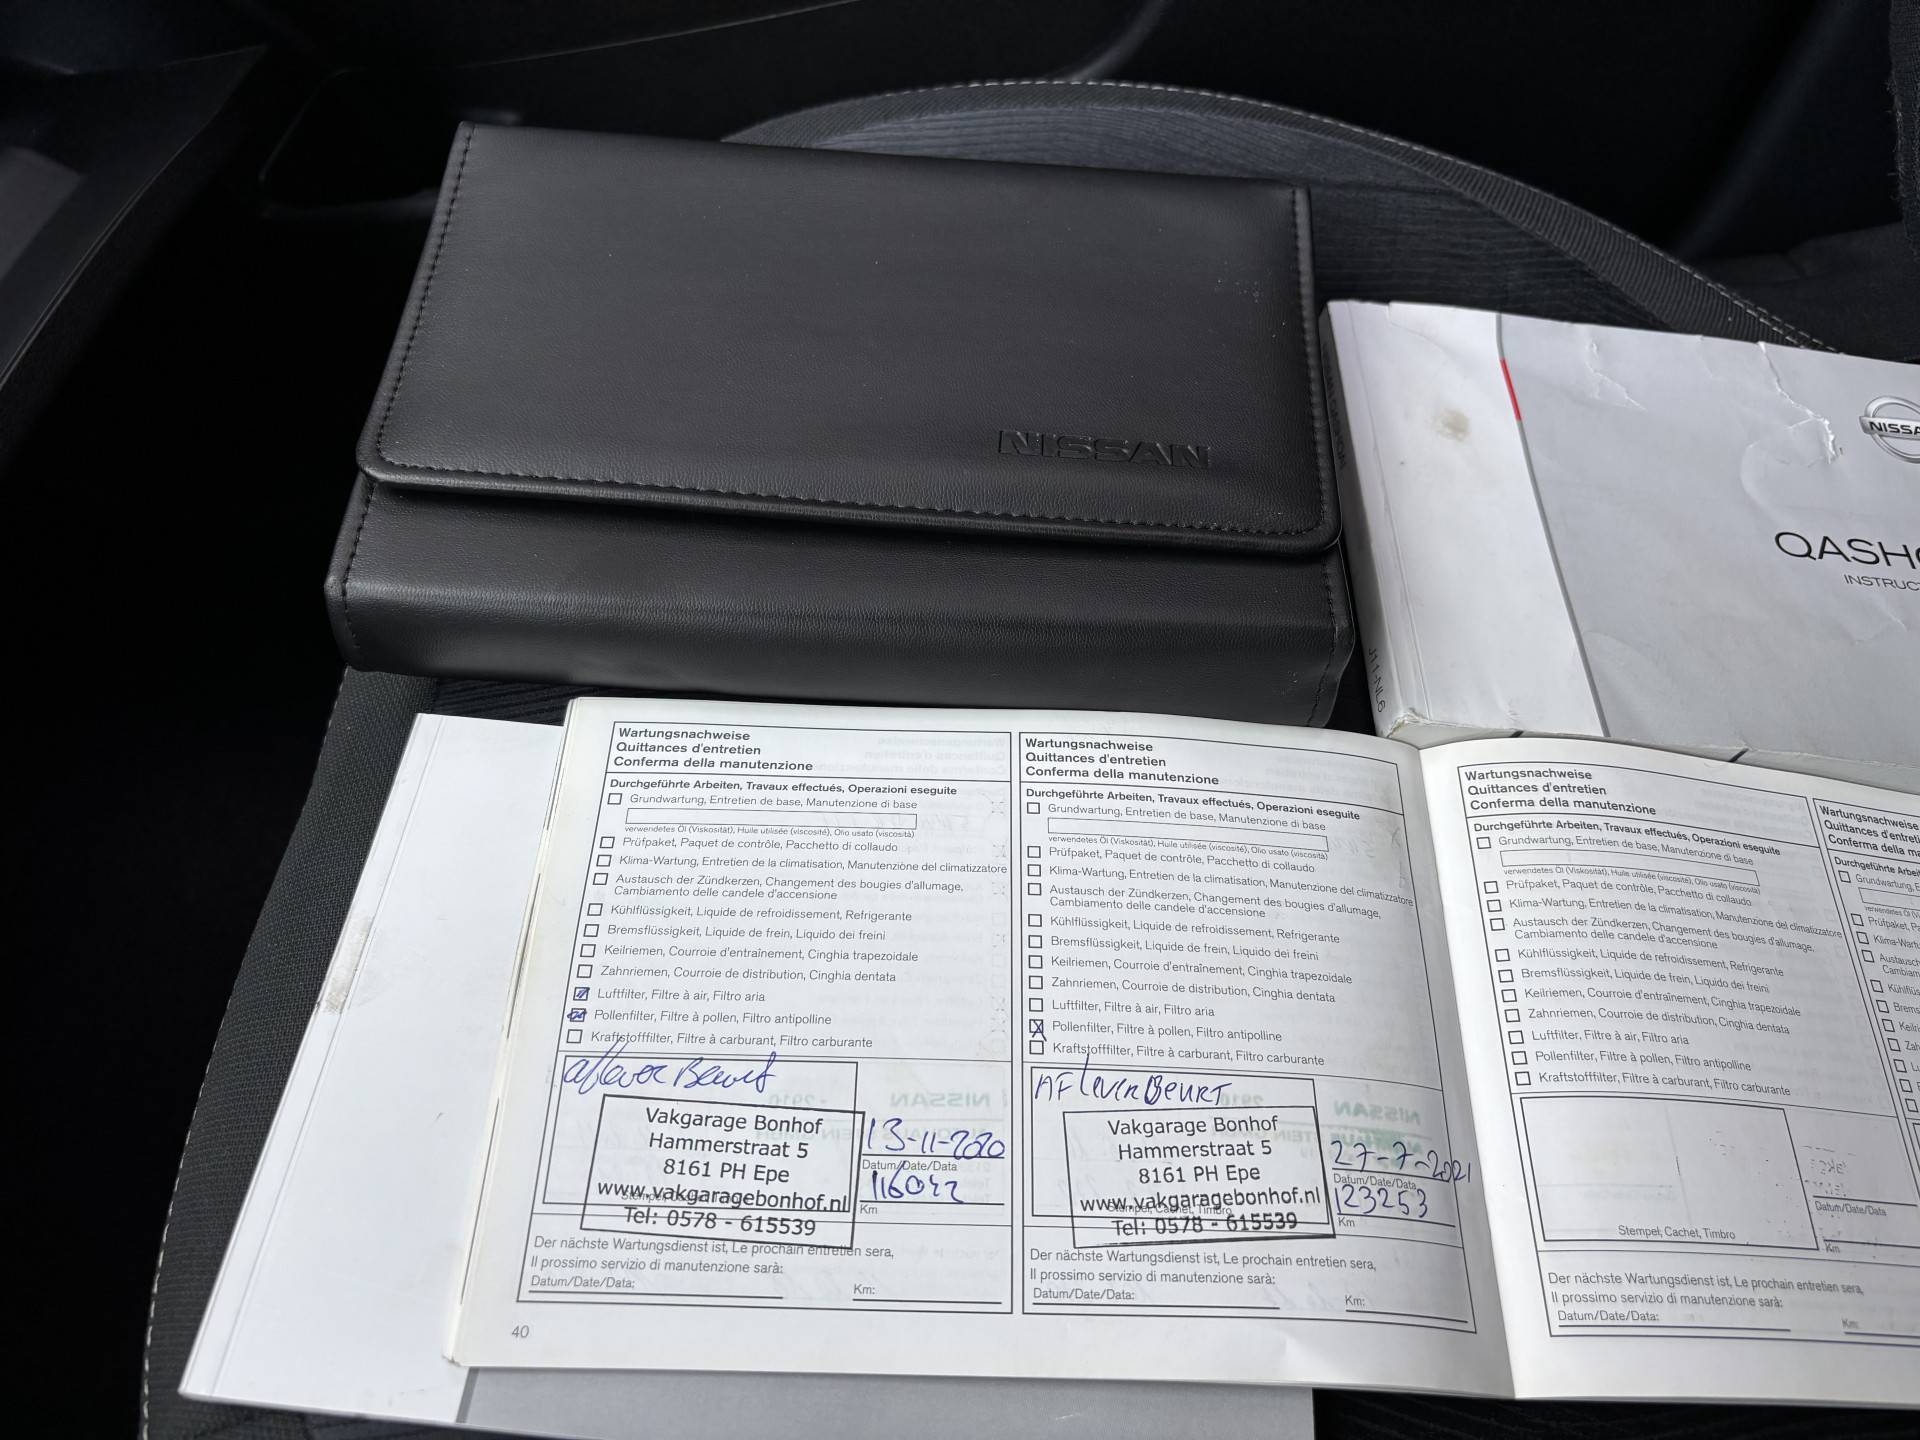 NISSAN
NISSA
QASHQ
INSTRUCT
J11-NL6
Wartungsnachweise
Quittances d'entretien
Conferma della manutenzione
Durchgeführte Arbeiten, Travaux effectués, Operazioni eseguite
Grundwartung, Entretien de base, Manutenzione di base
verwendetes Öl (Viskosität), Huile utilisée (viscosité), Olio usato (viscosità)
Prüfpaket, Paquet de contrôle, Pacchetto di collaudo
Klima-Wartung, Entretien de la climatisation, Manutenzione del climatizzatore
Austausch der Zündkerzen, Changement des bougies d'allumage,
Cambiamento delle candele d'accensione
Kühlflüssigkeit, Liquide de refroidissement, Refrigerante
Bremsflüssigkeit, Liquide de frein, Liquido dei freini
Keilriemen, Courroie d'entraînement, Cinghia trapezoidale
Zahnriemen, Courroie de distribution, Cinghia dentata
Luftfilter, Filtre à air, Filtro aria
Pollenfilter, Filtre à pollen, Filtro antipolline
Kraftstofffilter, Filtre à carburant, Filtro carburante
aflever Beurt
Vakgarage Bonhof
Hammerstraat 5
8161 PH Epe
www.vakgaragebonhof.nl
Tel: 0578 - 615539
13-11-2020
Datum/Date/Data
116042
Km
Der nächste Wartungsdienst ist, Le prochain entretien sera,
Il prossimo servizio di manutenzione sarà:
Datum/Date/Data:
Km:
40
Wartungsnachweise
Quittances d'entretien
Conferma della manutenzione
Durchgeführte Arbeiten, Travaux effectués, Operazioni eseguite
Grundwartung, Entretien de base, Manutenzione di base
verwendetes Öl (Viskosität), Huile utilisée (viscosité), Olio usato (viscosità)
Prüfpaket, Paquet de contrôle, Pacchetto di collaudo
Klima-Wartung, Entretien de la climatisation, Manutenzione del climatizzatore
Austausch der Zündkerzen, Changement des bougies d'allumage,
Cambiamento delle candele d'accensione
Kühlflüssigkeit, Liquide de refroidissement, Refrigerante
Bremsflüssigkeit, Liquide de frein, Liquido dei freini
Keilriemen, Courroie d'entraînement, Cinghia trapezoidale
Zahnriemen, Courroie de distribution, Cinghia dentata
Luftfilter, Filtre à air, Filtro aria
Pollenfilter, Filtre à pollen, Filtro antipolline
Kraftstofffilter, Filtre à carburant, Filtro carburante
AFleverBEURT
Vakgarage Bonhof
Hammerstraat 5
8161 PH Epe
www.vakgaragebonhof.nl
Stempel, Cachet, Timbro
Tel: 0578 - 615539
27-7-2021
Datum/Date/Data
123253
Km
Der nächste Wartungsdienst ist, Le prochain entretien sera,
Il prossimo servizio di manutenzione sarà:
Datum/Date/Data:
Km:
Wartungsnachweise
Quittances d'entretien
Conferma della manutenzione
Durchgeführte Arbeiten, Travaux effectués, Operazioni eseguite
Grundwartung, Entretien de base, Manutenzione di base
verwendetes Öl (Viskosität), Huile utilisée (viscosité), Olio usato (viscosità)
Prüfpaket, Paquet de contrôle, Pacchetto di collaudo
Klima-Wartung, Entretien de la climatisation, Manutenzione del climatizzatore
Austausch der Zündkerzen, Changement des bougies d'allumage,
Cambiamento delle candele d'accensione
Kühlflüssigkeit, Liquide de refroidissement, Refrigerante
Bremsflüssigkeit, Liquide de frein, Liquido dei freini
Keilriemen, Courroie d'entraînement, Cinghia trapezoidale
Zahnriemen, Courroie de distribution, Cinghia dentata
Luftfilter, Filtre à air, Filtro aria
Pollenfilter, Filtre à pollen, Filtro antipolline
Kraftstofffilter, Filtre à carburant, Filtro carburante
Stempel, Cachet, Timbro
Datum/Date/Data
Km
Der nächste Wartungsdienst ist, Le prochain entretien sera,
Il prossimo servizio di manutenzione sarà:
Datum/Date/Data:
Km:
Wartungsnachweise
Quittances d'entreti
Conferma della ma
Durchgeführte Arbei
Grundwartung, E
verwendetes Öl (Vi
Prüfpaket, Pa
Klima-Wartu
Austausch
Cambiam
Kühlflüs
Brems
Keilrie
Zah